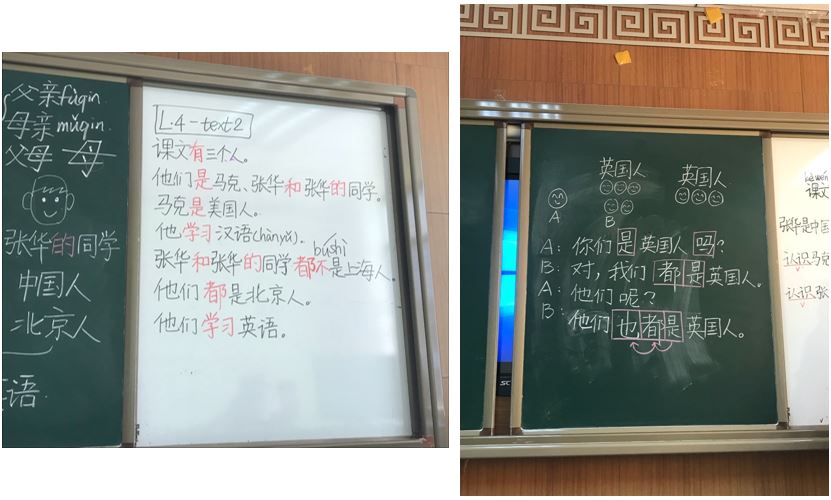 父亲fùqin
母亲mǔqin
父母 母
张华的同学
中国人
北京人
语
L.4-text2
课文有三个人。
他们是马克、张华和张华的同学。
马克是美国人。
他学习汉语(hànyǔ).
búshì
张华和张华的同学都不是上海人。
他们都是北京人。
他们学习英语。
英国人 英国人
A B
A: 你们是英国人吗?
B: 对,我们都是英国人。
A: 他们呢?
B: 他们也都是英国人。
kèwén
课文
张华是中国
认识马克
认识张